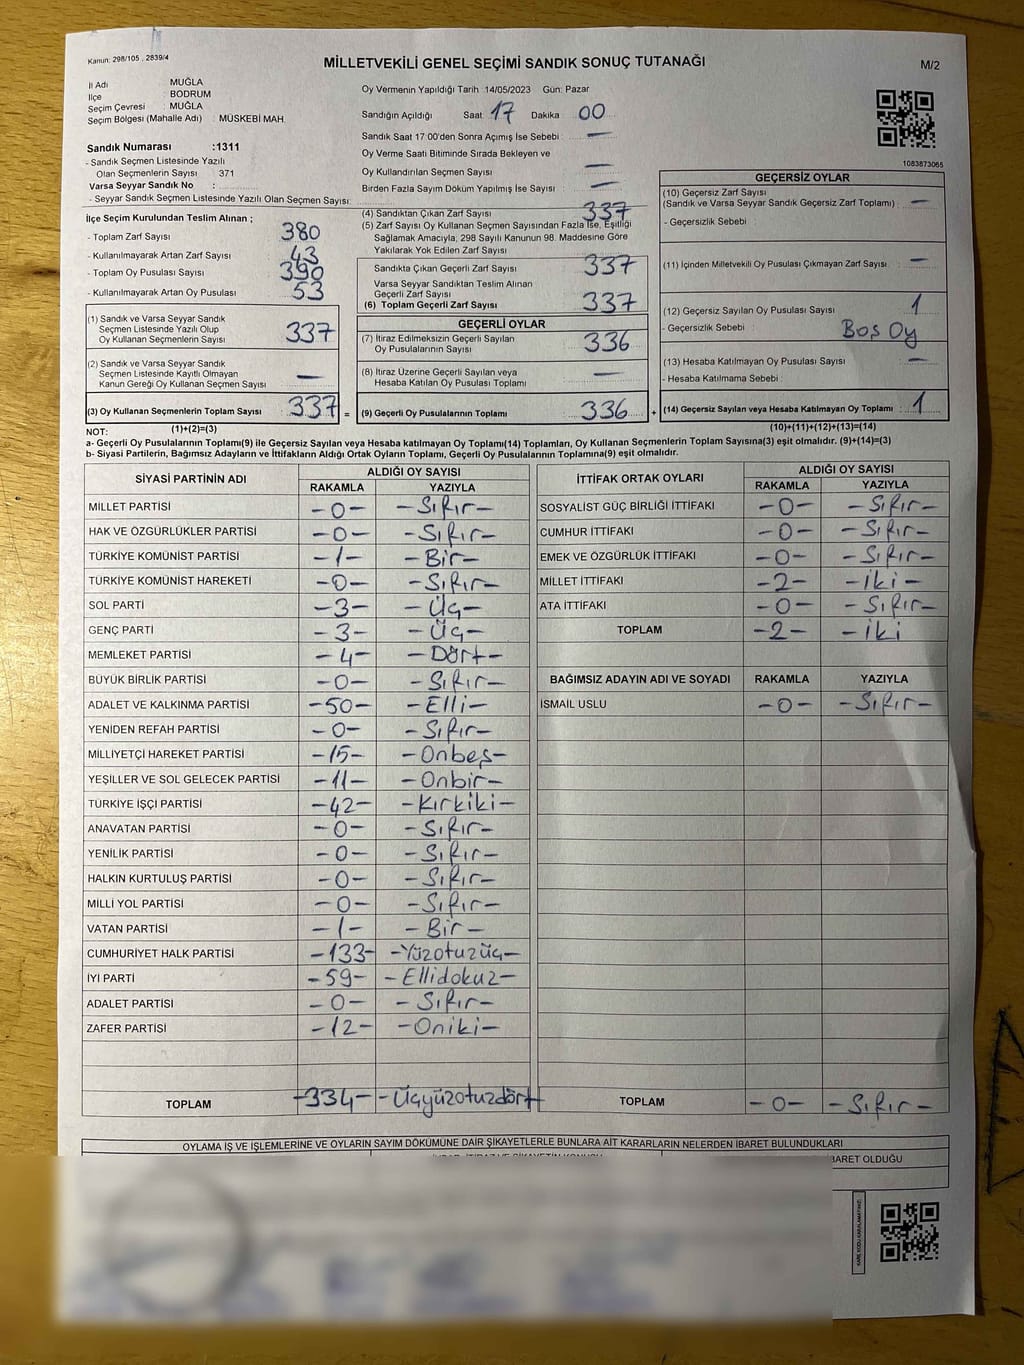 Kanun: 298/105 , 2839/4
MİLLETVEKİLİ GENEL SEÇİMİ SANDIK SONUÇ TUTANAĞI
M/2
İl Adı MUĞLA
İlçe : BODRUM
Seçim Çevresi : MUĞLA
Seçim Bölgesi (Mahalle Adı) : MÜSKEBİ MAH.
Sandık Numarası :1311
- Sandık Seçmen Listesinde Yazılı
Olan Seçmenlerin Sayısı 371
Varsa Seyyar Sandık No :
- Seyyar Sandık Seçmen Listesinde Yazılı Olan Seçmen Sayısı:
Oy Vermenin Yapıldığı Tarih 14/05/2023 Gün: Pazar
Sandığın Açıldığı Saat 17 Dakika 00
Sandık Saat 17 00'den Sonra Açımış İse Sebebi : —
Oy Verme Saati Bitiminde Sırada Bekleyen ve
Oy Kullandırılan Seçmen Sayısı —
Birden Fazla Sayım Döküm Yapılmış İse Sayısı : —
1083873065
İlçe Seçim Kurulundan Teslim Alınan ;
- Toplam Zarf Sayısı 380
- Kullanılmayarak Artan Zarf Sayısı 43
- Toplam Oy Pusulası Sayısı 390
- Kullanılmayarak Artan Oy Pusulası 53
(1) Sandık ve Varsa Seyyar Sandık
Seçmen Listesinde Yazılı Olup
Oy Kullanan Seçmenlerin Sayısı 337
(2) Sandık ve Varsa Seyyar Sandık
Seçmen Listesinde Kayıtlı Olmayan
Kanun Gereği Oy Kullanan Seçmen Sayısı —
(3) Oy Kullanan Seçmenlerin Toplam Sayısı 337 =
(1)+(2)=(3)
(4) Sandıktan Çıkan Zarf Sayısı 337
(5) Zarf Sayısı Oy Kullanan Seçmen Sayısından Fazla İse, Eşitliği
Sağlamak Amacıyla, 298 Sayılı Kanunun 98. Maddesine Göre
Yakılarak Yok Edilen Zarf Sayısı
Sandıkta Çıkan Geçerli Zarf Sayısı 337
Varsa Seyyar Sandıktan Teslim Alınan
Geçerli Zarf Sayısı
(6) Toplam Geçerli Zarf Sayısı 337
GEÇERLİ OYLAR
(7) İtiraz Edilmeksizin Geçerli Sayılan
Oy Pusulalarının Sayısı 336
(8) İtiraz Üzerine Geçerli Sayılan veya
Hesaba Katılan Oy Pusulası Toplamı —
(9) Geçerli Oy Pusulalarının Toplamı 336 +
GEÇERSİZ OYLAR
(10) Geçersiz Zarf Sayısı
(Sandık ve Varsa Seyyar Sandık Geçersiz Zarf Toplamı) : —
- Geçersizlik Sebebi :
(11) İçinden Milletvekili Oy Pusulası Çıkmayan Zarf Sayısı —
(12) Geçersiz Sayılan Oy Pusulası Sayısı 1
- Geçersizlik Sebebi : Boş Oy
(13) Hesaba Katılmayan Oy Pusulası Sayısı —
- Hesaba Katılmama Sebebi :
(14) Geçersiz Sayılan veya Hesaba Katılmayan Oy Toplamı : 1
(10)+(11)+(12)+(13)=(14)
NOT:
a- Geçerli Oy Pusulalarının Toplamı(9) ile Geçersiz Sayılan veya Hesaba katılmayan Oy Toplamı(14) Toplamları, Oy Kullanan Seçmenlerin Toplam Sayısına(3) eşit olmalıdır. (9)+(14)=(3)
b- Siyasi Partilerin, Bağımsız Adayların ve İttifakların Aldığı Ortak Oyların Toplamı, Geçerli Oy Pusulalarının Toplamına(9) eşit olmalıdır.
SİYASİ PARTİNİN ADI ALDIĞI OY SAYISI
RAKAMLA YAZIYLA
MİLLET PARTİSİ -0- -Sıfır-
HAK VE ÖZGÜRLÜKLER PARTİSİ -0- -Sıfır-
TÜRKİYE KOMÜNİST PARTİSİ -1- -Bir-
TÜRKİYE KOMÜNİST HAREKETİ -0- -Sıfır-
SOL PARTİ -3- -Üç-
GENÇ PARTİ -3- -Üç-
MEMLEKET PARTİSİ -4- -Dört-
BÜYÜK BİRLİK PARTİSİ -0- -Sıfır-
ADALET VE KALKINMA PARTİSİ -50- -Elli-
YENİDEN REFAH PARTİSİ -0- -Sıfır-
MİLLİYETÇİ HAREKET PARTİSİ -15- -Onbeş-
YEŞİLLER VE SOL GELECEK PARTİSİ -11- -Onbir-
TÜRKİYE İŞÇİ PARTİSİ -42- -Kırkiki-
ANAVATAN PARTİSİ -0- -Sıfır-
YENİLİK PARTİSİ -0- -Sıfır-
HALKIN KURTULUŞ PARTİSİ -0- -Sıfır-
MİLLİ YOL PARTİSİ -0- -Sıfır-
VATAN PARTİSİ -1- -Bir-
CUMHURİYET HALK PARTİSİ -133- -Yüzotuzüç-
İYİ PARTİ -59- -Ellidokuz-
ADALET PARTİSİ -0- -Sıfır-
ZAFER PARTİSİ -12- -Oniki-
TOPLAM -334- -Üçyüzotuzdört-
İTTİFAK ORTAK OYLARI ALDIĞI OY SAYISI
RAKAMLA YAZIYLA
SOSYALİST GÜÇ BİRLİĞİ İTTİFAKI -0- -Sıfır-
CUMHUR İTTİFAKI -0- -Sıfır-
EMEK VE ÖZGÜRLÜK İTTİFAKI -0- -Sıfır-
MİLLET İTTİFAKI -2- -İki-
ATA İTTİFAKI -0- -Sıfır-
TOPLAM -2- -İki
BAĞIMSIZ ADAYIN ADI VE SOYADI RAKAMLA YAZIYLA
İSMAİL USLU -0- -Sıfır-
TOPLAM -0- -Sıfır-
OYLAMA İŞ VE İŞLEMLERİNE VE OYLARIN SAYIM DÖKÜMÜNE DAİR ŞİKAYETLERLE BUNLARA AİT KARARLARIN NELERDEN İBARET BULUNDUKLARI
BARET OLDUĞU